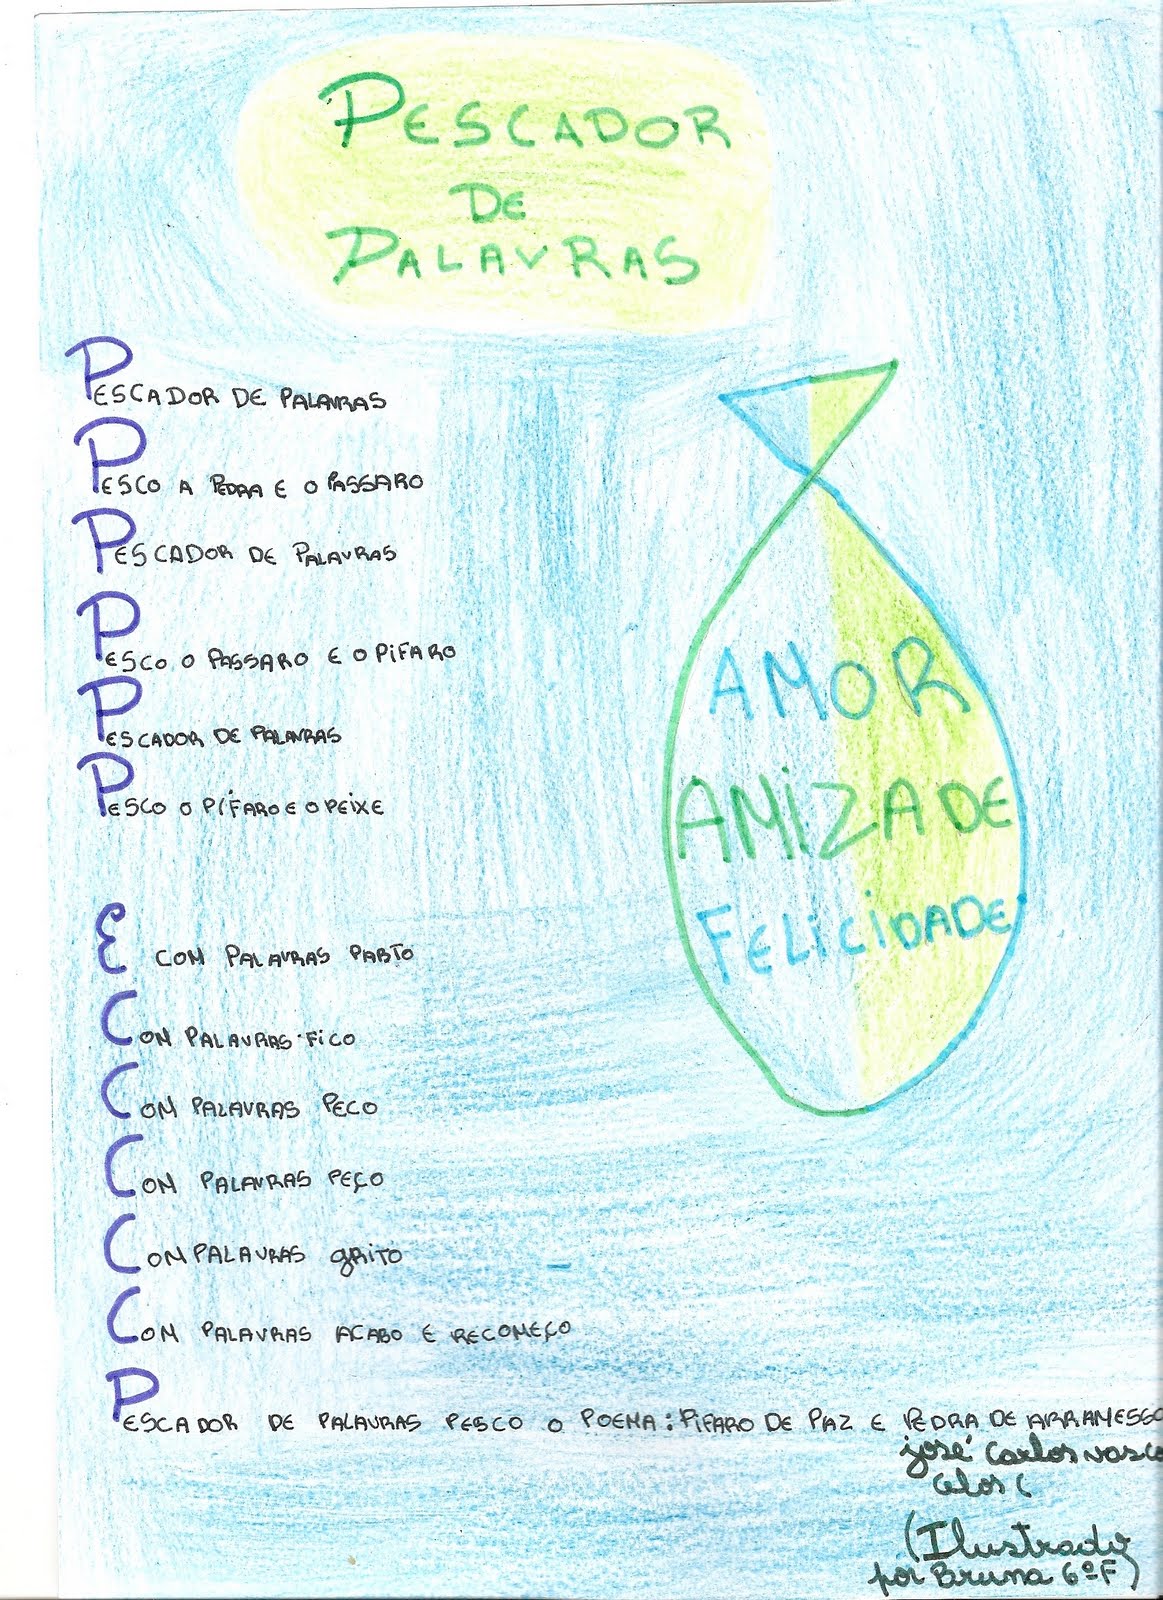 PESCADOR
DE
PALAVRAS
PESCADOR DE PALAVRAS
PESCO A PEDRA E O PASSARO
PESCADOR DE PALAVRAS
PESCO O PASSARO E O PIFARO
PESCADOR DE PALAVRAS
PESCO O PÍFARO E O PEIXE
E COM PALAVRAS PARTO
COM PALAVRAS FICO
COM PALAVRAS PECO
COM PALAVRAS PEÇO
COM PALAVRAS GRITO
COM PALAVRAS ACABO E RECOMEÇO
PESCADOR DE PALAVRAS PESCO O POEMA: PIFARO DE PAZ E PEDRA DE ARRAMESSO
josé Carlos Vasco
celos (
(Ilustrado
por Bruna 6ºF)
AMOR
AMIZADE
FELICIDADE